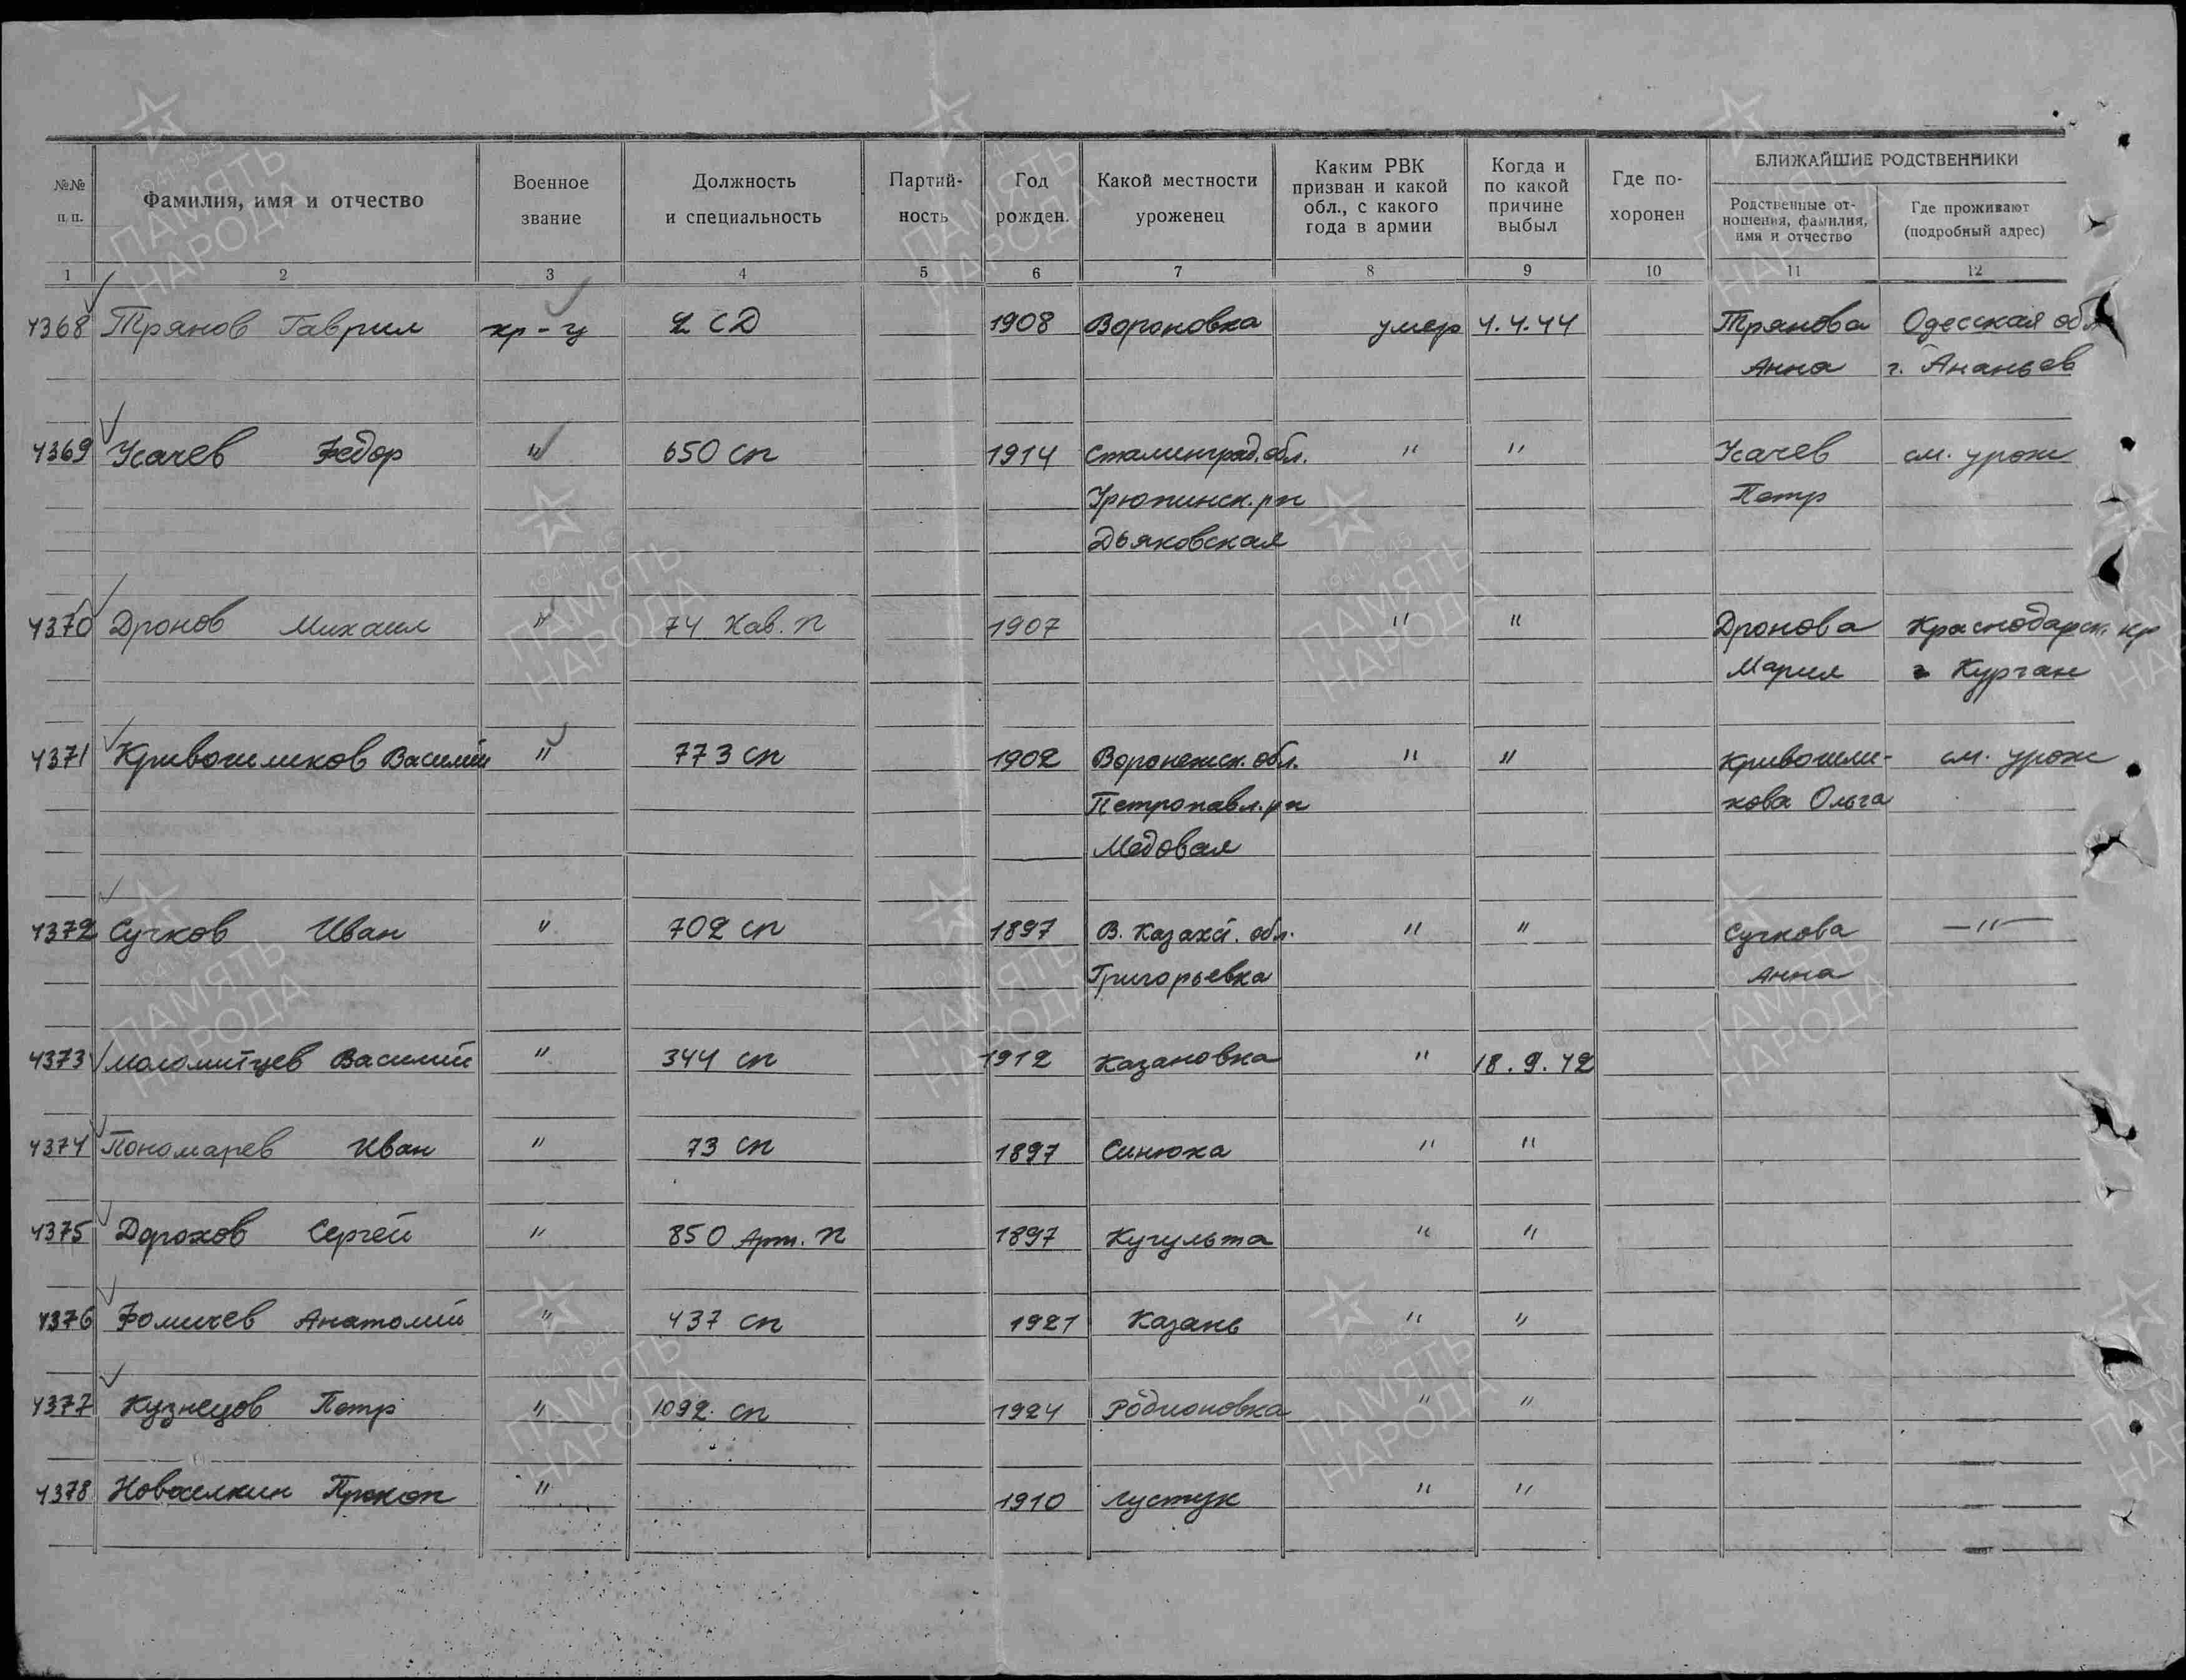 №№ п/п.
Фамилия, имя и отчество
Военное звание
Должность и специальность
Партий-ность
Год рожден.
Какой местности уроженец
Каким РВК призван и какой обл., с какого года в армии
Когда и по какой причине выбыл
Где по-хоронен
БЛИЖАЙШИЕ РОДСТВЕННИКИ
Родственные от-ношения, фамилия, имя и отчество
Где проживают (подробный адрес)
1 2 3 4 5 6 7 8 9 10 11 12
4368 Трянов Гаврил кр-ц 2 СД 1908 Вороновка умер 4.4.44 Трянова Одесская обл
Анна г. Ананьев
4369 Усачев Федор " 650 сп 1914 Сталинград. обл. " " Усачев см. урож
Урюпинск. рн Петр
Дьяковская
4370 Дронов Михаил " 74 Кав. п 1907 " " Дронова Краснодарск. кр
Мария г Курган
4371 Кривошликов Василий " 773 сп 1902 Воронежск. обл. " " Кривошли- см. урож
Петропавл. рн кова Ольга
Медовая
4372 Сучков Иван " 702 сп 1897 В. Казахст. обл. " " Сучкова —"—
Григорьевка Анна
4373 Моломитцев Василий " 344 сп 1912 Казановка " 18.9.42
4374 Пономарев Иван " 73 сп 1897 Синюха " "
4375 Дорохов Сергей " 850 Арт. п 1897 Кугульта " "
4376 Фомичев Анатолий " 437 сп 1921 Казань " "
4377 Кузнецов Петр " 1092 сп 1924 Родионовка " "
4378 Новоселкин Прокоп " 1910 Лустук " "
1941-1945
ПАМЯТЬ
НАРОДА